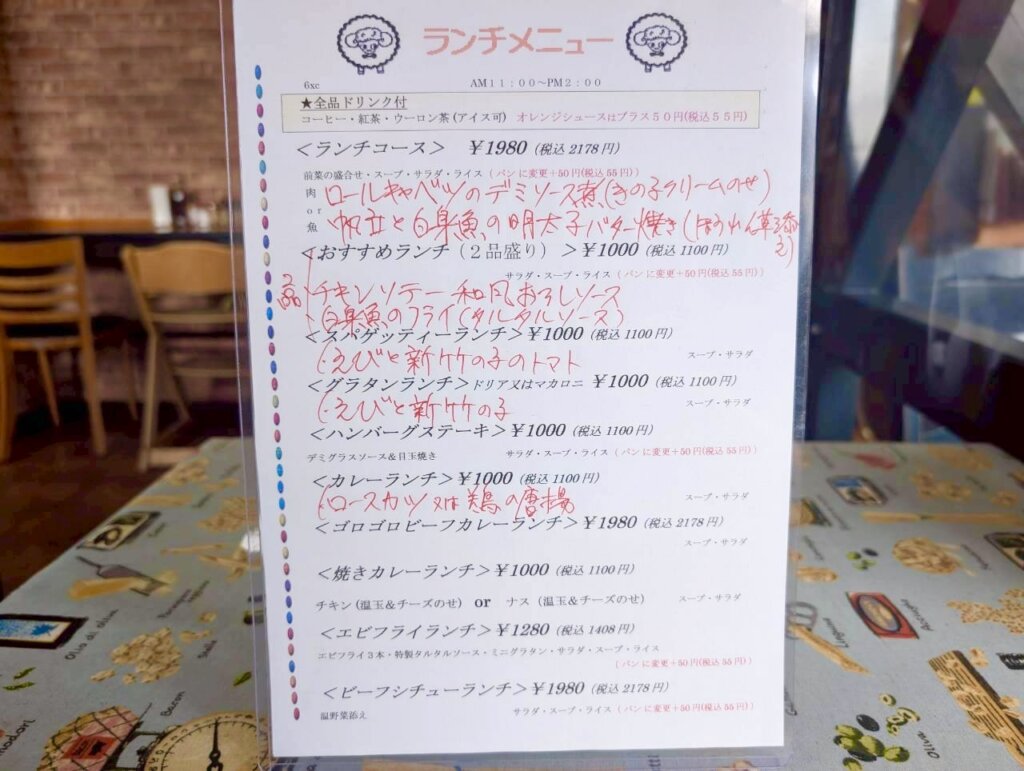 ランチメニュー
6xc
AM１１：００～PM２：００
★全品ドリンク付
コーヒー・紅茶・ウーロン茶(アイス可)　オレンジジュースはプラス５０円(税込５５円)
＜ランチコース＞　￥1980 (税込 2178 円)
前菜の盛合せ・スープ・サラダ・ライス ( パン に変更＋50 円(税込 55 円))
肉 ロールキャベツのデミソース煮(きの子クリームのせ)
or
魚 帆立と白身魚の明太子バター焼き(ほうれん草添え)
＜おすすめランチ（２品盛り）＞￥1000 (税込 1100 円)
サラダ・スープ・ライス ( パン に変更＋50 円(税込 55 円))
チキンソテー和風おろしソース
白身魚のフライ(タルタルソース)
＜スパゲッティーランチ＞￥1000 (税込 1100 円)
スープ・サラダ
えびと新竹の子のトマト
＜グラタンランチ＞ドリア又はマカロニ ￥1000 (税込 1100 円)
スープ・サラダ
えびと新竹の子
＜ハンバーグステーキ＞￥1000 (税込 1100 円)
デミグラスソース＆目玉焼き サラダ・スープ・ライス ( パン に変更＋50 円(税込 55 円))
＜カレーランチ＞￥1000 (税込 1100 円)
スープ・サラダ
ロースカツ又は鶏の唐揚
＜ゴロゴロビーフカレーランチ＞￥1980 (税込 2178 円)
スープ・サラダ
＜焼きカレーランチ＞￥1000 (税込 1100 円)
チキン (温玉＆チーズのせ) or ナス (温玉＆チーズのせ) スープ・サラダ
＜エビフライランチ＞￥1280 (税込 1408 円)
エビフライ３本・特製タルタルソース・ミニグラタン・サラダ・スープ・ライス
( パン に変更＋50 円(税込 55 円))
＜ビーフシチューランチ＞￥1980 (税込 2178 円)
温野菜添え サラダ・スープ・ライス ( パン に変更＋50 円(税込 55 円))
Olio di oliva
Sale
Bacon
Oliva